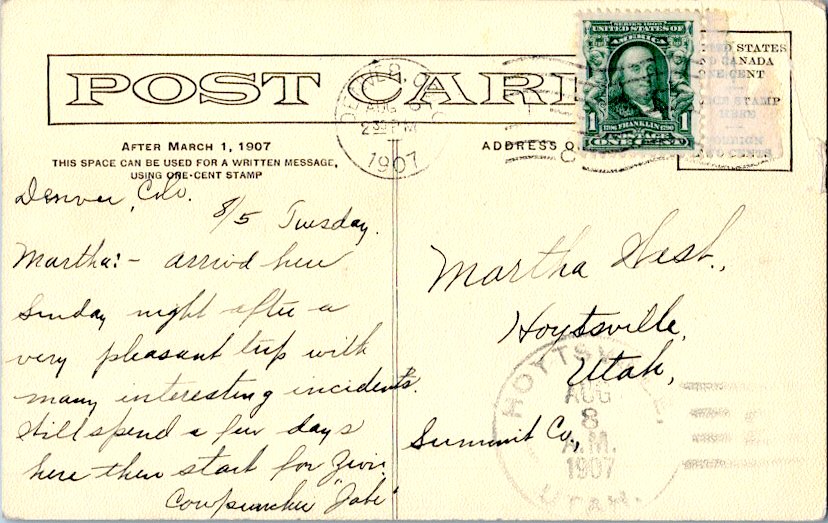 POST CARD
AFTER MARCH 1, 1907
THIS SPACE CAN BE USED FOR A WRITTEN MESSAGE,
USING ONE-CENT STAMP
ADDRESS O
SERIES 1902
UNITED STATES OF
AMERICA
1706 FRANKLIN 1790
POSTAGE
1 ONE CENT 1
STATES
CANADA
CENT
STAMP
HERE
CENTS
DENVER, COLO
AUG 6
2 30 PM
1907
Denver, Colo.
8/5 Tuesday.
Martha:- arrivd here
Sunday night after a
very pleasant trip with
many interesting incidents.
Still spend a few days
here then start for Zion.
Cowpuncher "Jake"
Martha West,
Hoytsville,
Utah,
Summit Co.,
HOYTSVILLE
AUG
8
A.M.
1907
UTAH.